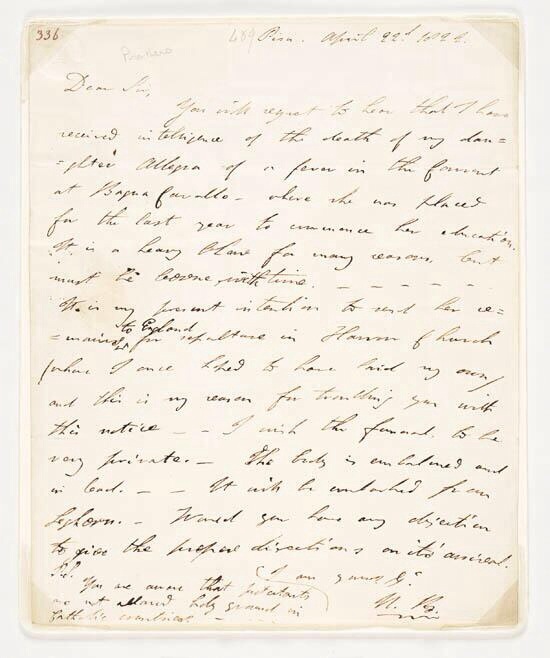 336
489 Pisa. April 22d 1822.
Dear Sir,
You will regret to hear that I have
received intelligence of the death of my dau=
=ghter Allegra of a fever in the Convent
at Bagna Cavallo – where she was placed
for the last year to commence her education.
It is a heavy blow for many reasons, but
must be borne, with time. – – – – –
It is my present intention to send her re=
=mains to England for sepulture in Harrow Church
(where I once hoped to have laid my own)
and this is my reason for troubling you with
this notice – – I wish the funeral to be
very private. – The body is embalmed and
in lead. – – It will be embarked from
Leghorn. – Would you have any objection
to give the proper directions on its arrival.
I am yours &c
N. B.
P.S.
You are aware that protestants
are not allowed holy ground in
Catholic countries. – – –